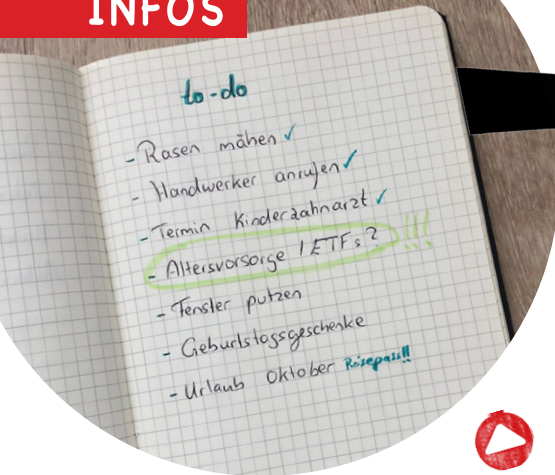 INFOS
to-do
- Rasen mähen ✓
- Handwerker anrufen ✓
- Termin Kinderzahnarzt ✓
- Altersvorsorge / ETFs? !!!
- Fenster putzen
- Geburtstagsgeschenke
- Urlaub Oktober Reisepass!!